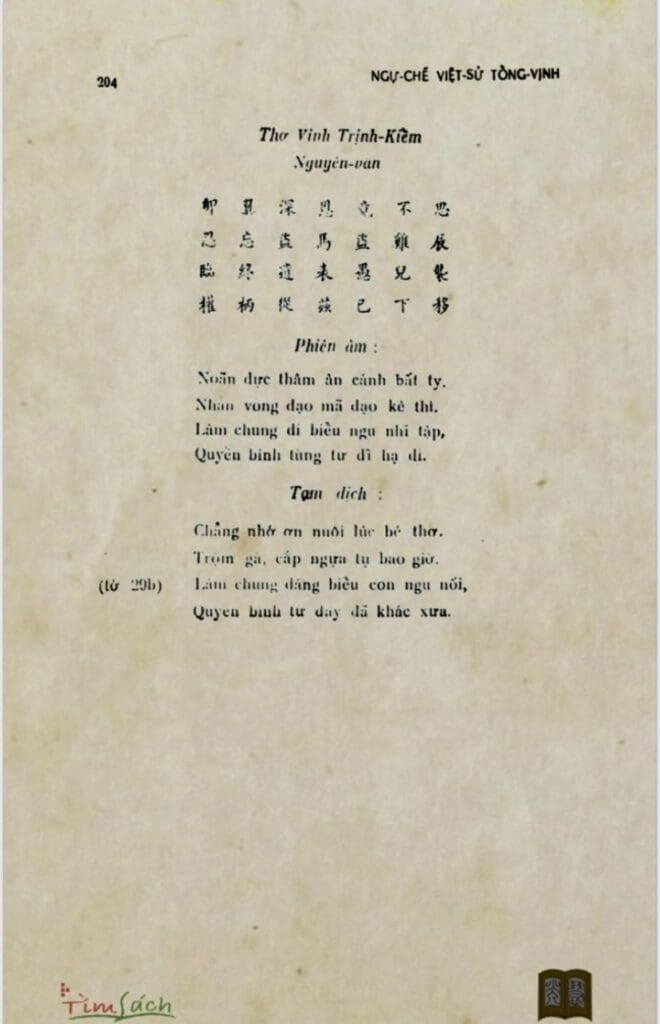 204
NGỰ-CHẾ VIỆT-SỬ TỔNG-VỊNH
Thơ Vịnh Trịnh-Kiểm
Nguyên-văn
卵翼深恩竟不思
忍忘盜馬盜雞辰
臨終遺表愚兒襲
權柄從茲已下移
Phiên âm :
Noãn dực thâm ân cánh bất ty.
Nhẫn vong đạo mã đạo kê thì.
Lâm chung di biểu ngu nhi tập,
Quyền bính tùng tư dĩ hạ di.
Tạm dịch :
Chẳng nhớ ơn nuôi lúc bé thơ.
Trộm gà, cắp ngựa tự bao giờ.
(tờ 29b) Lâm chung dâng biểu con ngu nối,
Quyền bính từ đây đã khác xưa.
TimSách